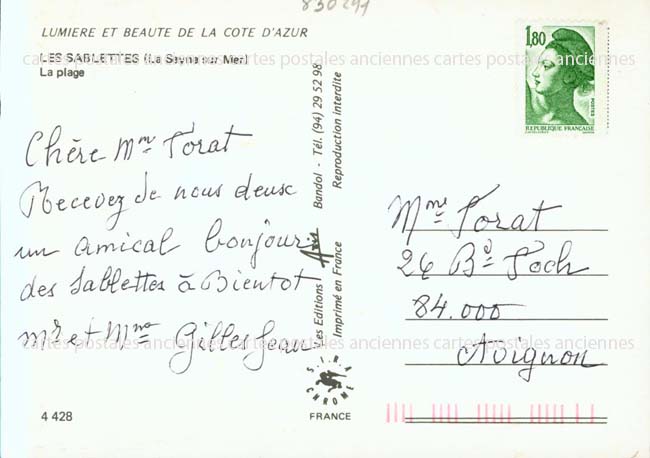 830244
LUMIERE ET BEAUTE DE LA COTE D'AZUR
LES SABLETTES (La Seyne sur Mer)
La plage
cartes postales anciennes cartes postales anciennes cartes postales anciennes
1,80
POSTES
REPUBLIQUE FRANÇAISE
Chère Mme Torat
Recevez de nous deux
un amical bonjour
des Sablettes à Bientot
Mr et Mme Gilles Jean
Les Editions Aris Bandol - Tél. (94) 29 52 98
Imprimé en France Reproduction interdite
Mme Torat
26 Bd Foch
84.000
Avignon
cartes postales anciennes cartes postales anciennes cartes postales anciennes
CHROME
FRANCE
4 428